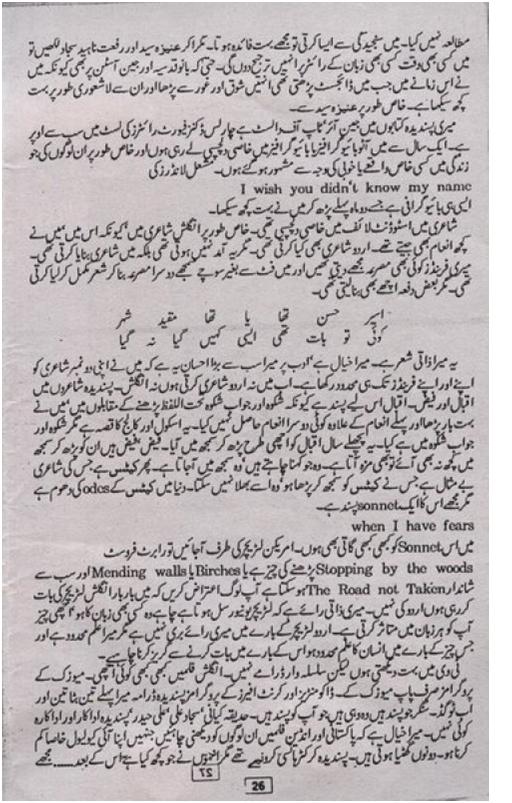 مطالعہ نہیں کیا۔ میں سنجیدگی سے ایسا کرتی تو مجھے بہت فائدہ ہوتا۔ مگر اکر عنیزہ سید اور رفعت ناہید سجاد لکھیں تو
میں کسی بھی وقت کسی بھی زبان کے رائٹر پر انہیں ترجیح دوں گی۔ حتیٰ کہ بانو قدسیہ اور جین آسٹن پر بھی کیونکہ میں
نے اس زمانے میں جب میں ڈائجسٹ پڑھتی تھی انہیں شوق اور غور سے پڑھا اور ان سے لاشعوری طور پر بہت
کچھ سیکھا ہے۔ خاص طور پر عنیزہ سید سے۔
میری پسندیدہ کتابوں میں جین آئر ٹاپ آف دا لسٹ ہے چارلس ڈکنز فیورٹ رائٹرز کی لسٹ میں سب سے اوپر
ہے۔ ایک سال سے میں آٹو بائیو گرافیز یا بائیو گرافیز میں خاصی دلچسپی لے رہی ہوں اور خاص طور پر ان لوگوں کی جو
زندگی میں کسی خاص واقعے یا خوبی کی وجہ سے مشہور ہو گئے ہوں۔ مشعل لانڈرز کی
I wish you didn't know my name
ایسی ہی بائیو گرافی ہے جسے دو ماہ پہلے پڑھ کر میں نے بہت کچھ سیکھا۔
شاعری میں اسٹوڈنٹ لائف میں خاصی دلچسپی تھی۔ خاص طور پر انگلش شاعری میں، کیونکہ اس میں، میں نے
کچھ انعام بھی جیتے تھے۔ اردو شاعری بھی کیا کرتی تھی۔ مگر یہ آمد نہیں ہوتی تھی بلکہ میں شاعری بنایا کرتی تھی۔
میری فرینڈز کوئی بھی مصرعہ مجھے دیتی تھیں اور میں منٹ سے بغیر سوچے سمجھے دوسرا مصرعہ بنا کر شعر مکمل کر لیا کرتی
تھی۔ مگر بعض دفعہ اچھے بھی بنا لیتی تھی۔
اسیر حسن تھا یا تھا مقید شہر
کوئی تو بات تھی ایسی کہیں گیا نہ گیا
یہ میرا ذاتی شعر ہے۔ میرا خیال ہے، ادب پر میرا سب سے بڑا احسان یہ ہے کہ میں نے اپنی دو نمبر شاعری کو
اپنے اور اپنے فرینڈز تک ہی محدود رکھا ہے۔ اب میں نہ اردو شاعری کرتی ہوں نہ انگلش۔ پسندیدہ شاعروں میں
اقبال اور فیض۔ اقبال اس لیے پسند ہے کیونکہ شکوہ اور جواب شکوہ تحت اللفظ پڑھنے کے مقابلوں میں، میں نے
بہت بار پڑھا اور پہلے انعام کے علاوہ کوئی دوسرا انعام حاصل نہیں کیا۔ یہ اسکول اور کالج کا قصہ ہے مگر شکوہ اور
جواب شکوہ میں ہے کیا۔ یہ پچھلے سال اقبال کو اچھی طرح پڑھ کر سمجھ میں آیا۔ فیض، فیض ہیں ان کو پڑھ کر سمجھ
میں کچھ نہ بھی آئے تو بھی مزہ آتا ہے۔ وہ جو کہنا چاہتے ہیں، وہ سمجھ میں آ جاتا ہے۔ پھر کیٹس ہے جس کی شاعری
بے مثال ہے جس نے کیٹس کو سمجھ کر پڑھا ہو، وہ اسے بھلا نہیں سکتا۔ دنیا میں کیٹس کے odes کی دھوم ہے
مگر مجھے اس کا ایک sonnet پسند ہے۔
when I have fears
میں اس Sonnet کو کبھی کبھی گاتی بھی ہوں۔ امریکن لٹریچر کی طرف آ جائیں تو رابرٹ فروسٹ
Stopping by the woods پڑھنے کی چیز ہے یا Birches یا Mending walls اور سب سے
شاندار The Road not Taken ہو سکتا ہے آپ لوگ اعتراض کریں کہ میں بار بار انگلش لٹریچر کی بات
کر رہی ہوں اردو کی نہیں۔ میری ذاتی رائے ہے کہ لٹریچر یونیورسل ہوتا ہے چاہے وہ کسی بھی زبان کا ہو، اچھی چیز
آپ کو ہر زبان میں متاثر کرتی ہے۔ اردو لٹریچر کے بارے میں میری رائے بری نہیں ہے مگر میرا علم محدود ہے اور
جس چیز کے بارے میں انسان کا علم محدود ہو اس کے بارے میں بات کرنے سے گریز کرنا چاہیے۔
ٹی وی میں بہت دیکھتی ہوں لیکن سلسلہ وار ڈرامے نہیں۔ انگلش فلمیں کبھی کبھی کوئی اچھی۔ میوزک کے
پروگرامز صرف پاپ میوزک کے۔ ڈاکومنٹریز اور کرنٹ افیئرز کے پروگرامز پسندیدہ ڈرامہ میرا پہلے تین بٹا تین اور
اب لو گڈ۔ سنگر جو پسند ہیں وہ وہی ہیں جو آپ کو پسند ہیں۔ حدیقہ کیانی، سجاد علی، علی حیدر، پسندیدہ اداکار اور اداکارہ
کوئی نہیں۔ میرا خیال ہے کہ پاکستانی اور انڈین فلمیں ان لوگوں کو دیکھنی چاہئیں جنہیں اپنا آئی کیو لیول خاصا کم
کرنا ہو۔ دونوں گھٹیا ہوتی ہیں۔ پسندیدہ کرکٹر ہنسی کرونیے تھے مگر انہوں نے جو کچھ کیا ہے اس کے بعد...... مجھے
27
26